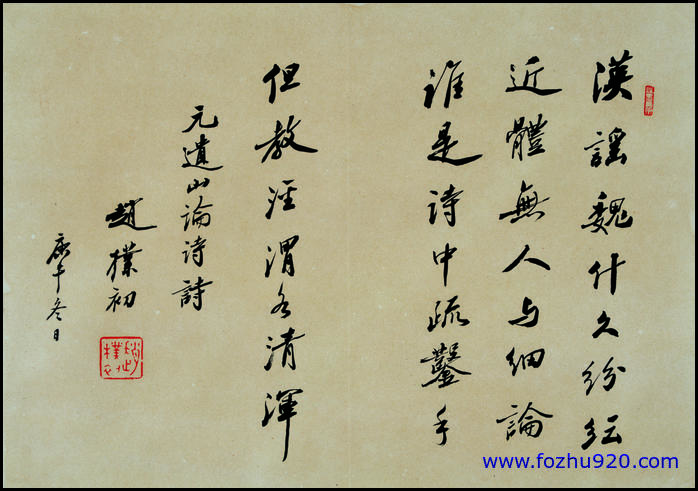 漢謡魏什久紛紜
近體無人与細論
誰是诗中疏鑿手
但教涇渭各清渾
元遺山論诗詩
趙樸初
庚午冬日
趙樸初
www.fozhu920.com